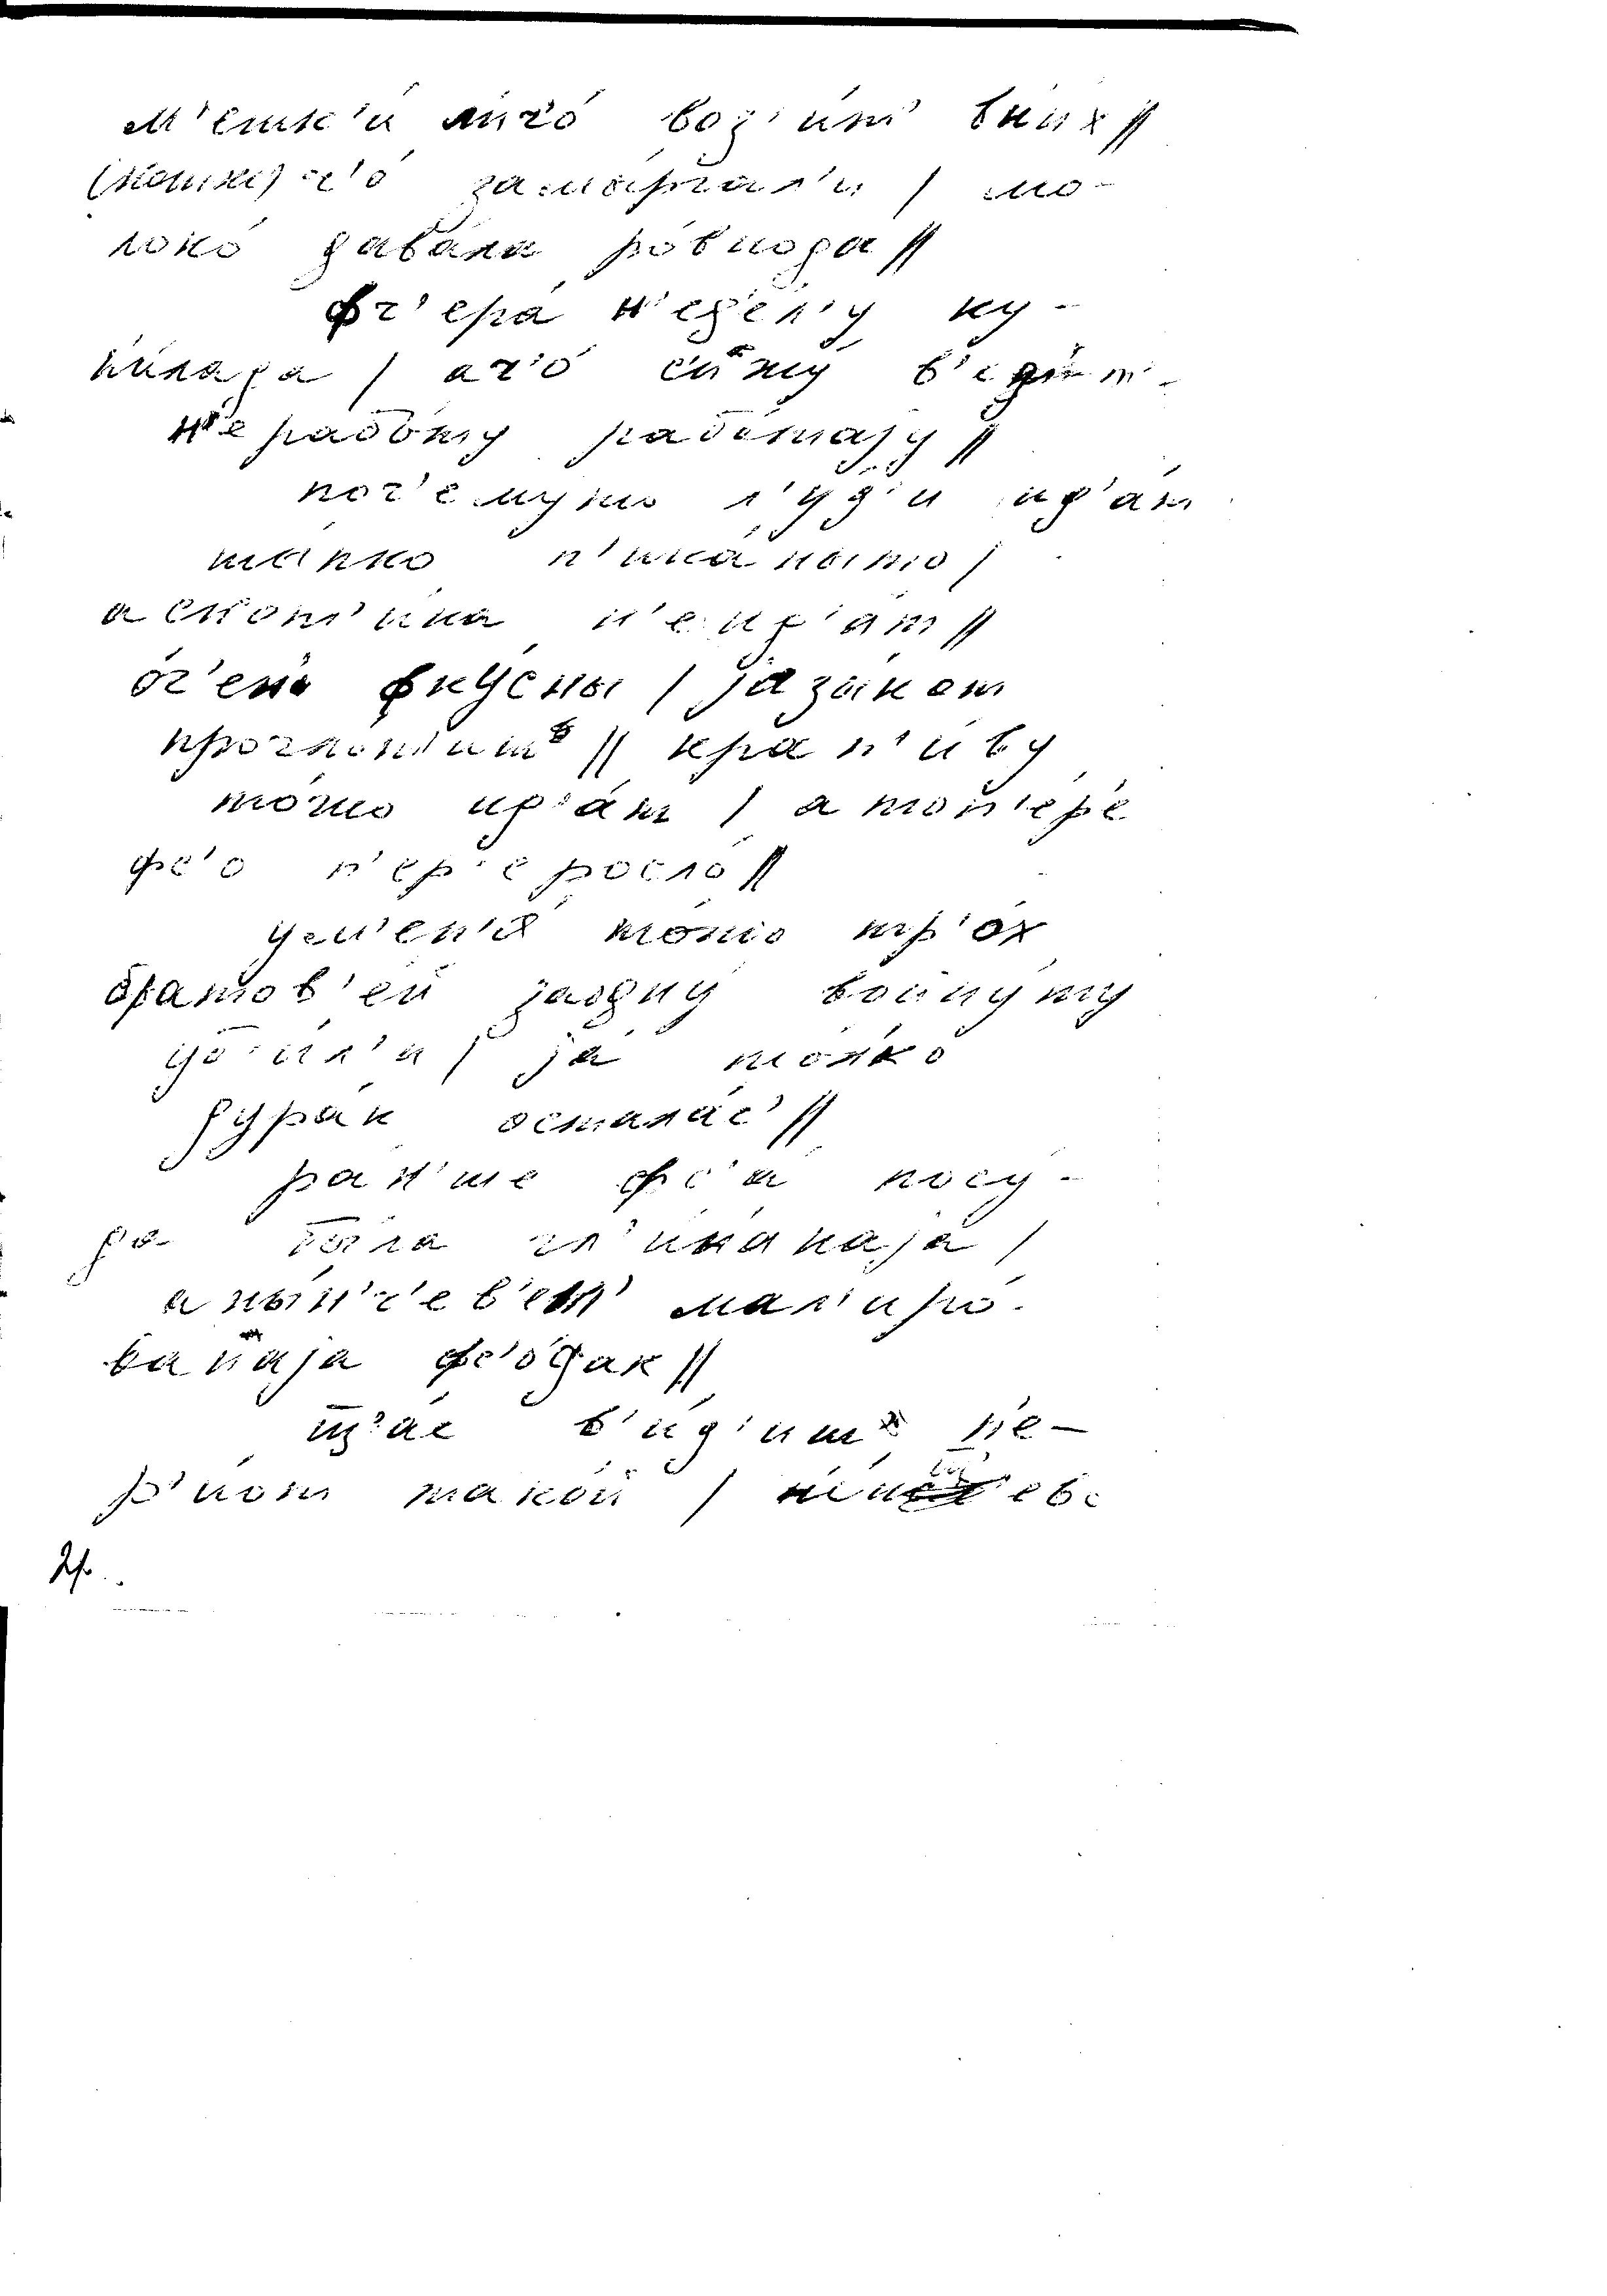 м'ешк'и́ воз'и́т' вн'и́х //
(кошки) ч'о́ зама́ргал'и / мо-
локо́ дава́ла ро́внода //
фч'ера́ н'ед'е́л'у ку-
па́лада / ач'о́
н'ерабо́ту рабо́тајy //
поч'ему́то л'у́д'и ид'а́т
то́лко п'ика́ныто /
а скот'и́на н'еид'а́т //
о́ч'ен' фку́сны / јазы́ком
проглот'иш //  крап'и́ву
то́жо ид'а́т / атоп'е́р'е
фс'о п'ер'еросло́ //
ум'ен'а́ то́л'ко тр'о́х
братов'е́й заодну́ войну́ту
уб'и́л'и / ја́ то́л'ко
дура́к оста́лас' //
ра́н'ше фс'а́ посу́-
да бы́ла гл'и́наnаја /
аны́н'ч'е в'ет' мал'иро́-
ванаја фс'о́дак //
шч'ас в'и́д'иш пе-
р'и́од тако́й /